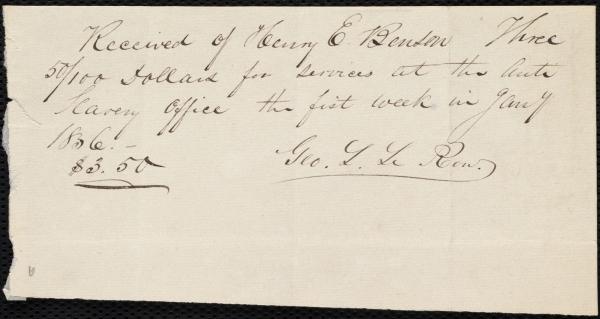 Received of Henry E. Benson Three
50/100 Dollars for services at the Anti
Slavery Office the fist week in Jany
1836.-
$3.50 Geo. L. Le Row.